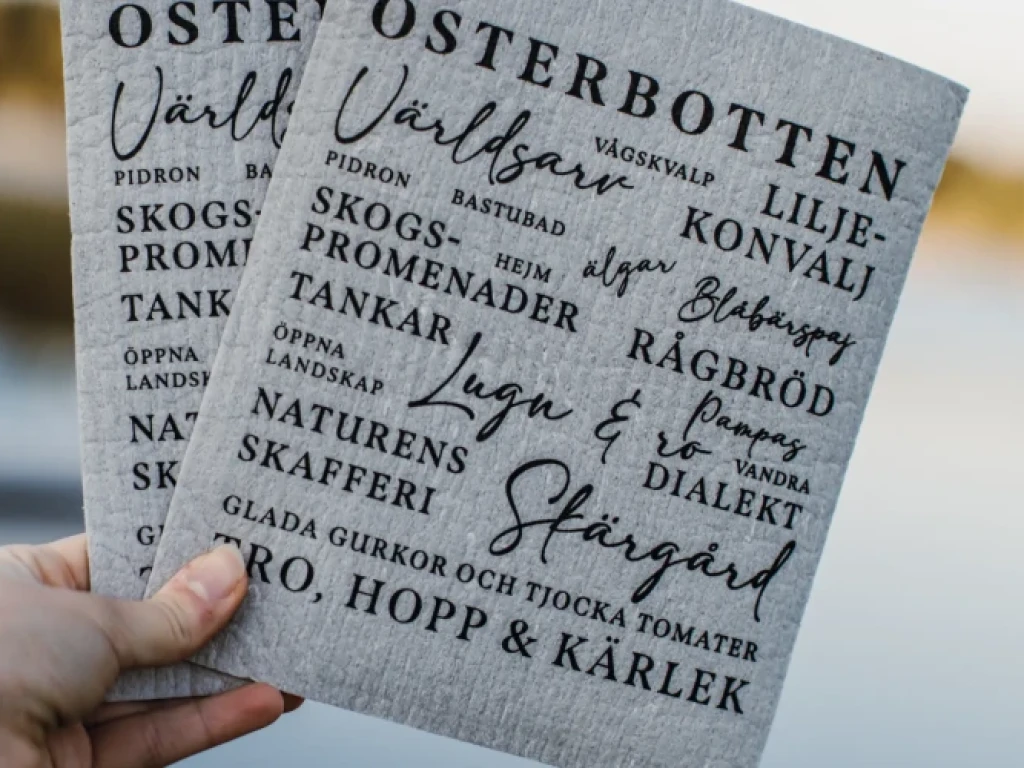 OSTERBOTTEN
Världsarv
VÅGSKVALP
PIDRON
BASTUBAD
LILJE-
KONVALJ
SKOGS-
PROMENADER
HEJM
älgar
Blåbärspaj
TANKAR
RÅGBRÖD
ÖPPNA
LANDSKAP
Lugn & ro
Pampas
VANDRA
NATURENS
SKAFFERI
DIALEKT
Skärgård
GLADA GURKOR OCH TJOCKA TOMATER
TRO, HOPP & KÄRLEK
OSTE
Världs
PIDRON
BA
SKOGS-
PROM
TANK
ÖPPNA
LANDSK
NAT
SK